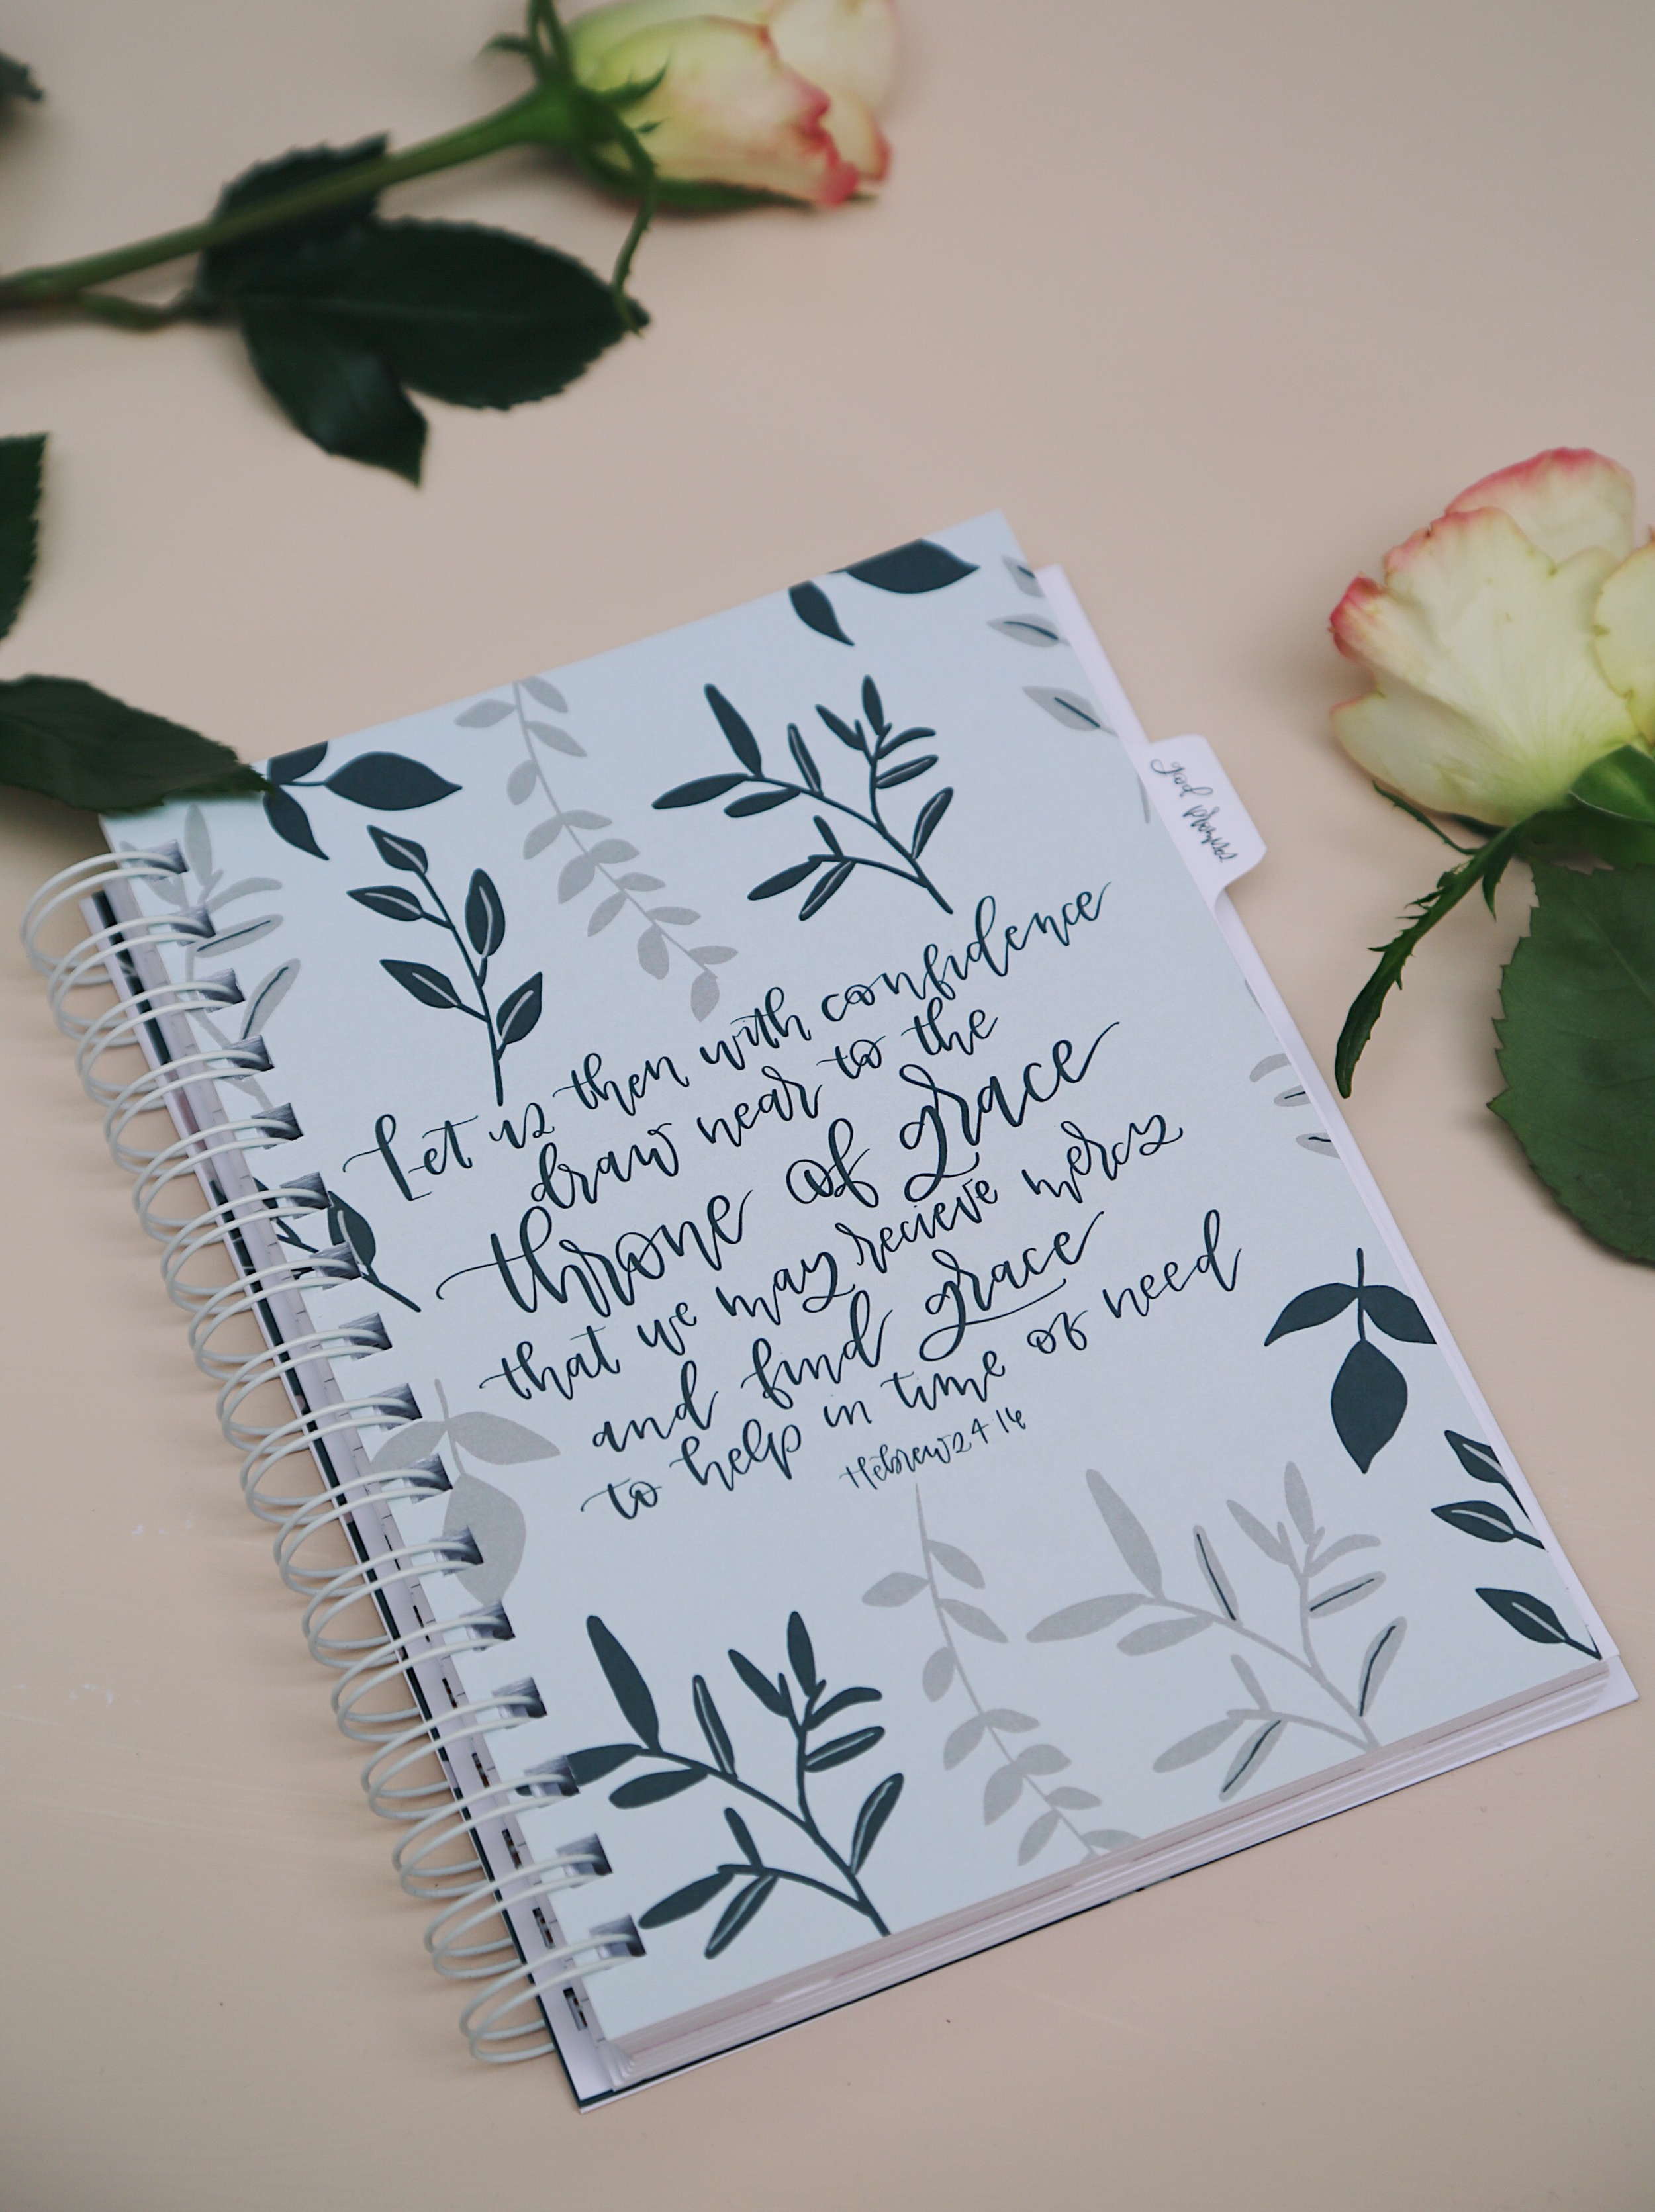 Let us then with confidence
draw near to the
throne of grace
that we may recieve mercy
and find grace
to help in time of need
Hebrews 4 16